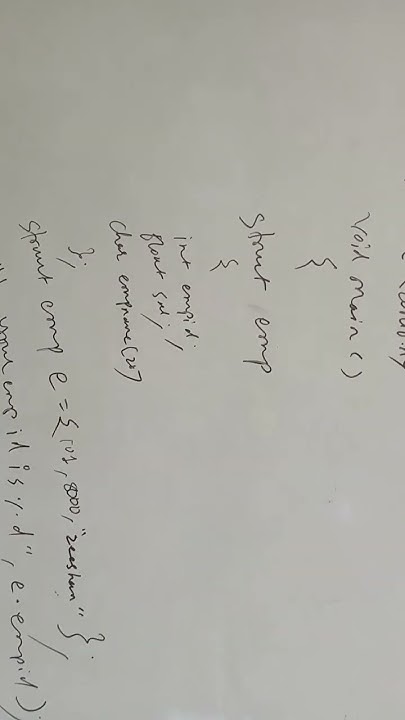 void main()
{
struct emp
{
int empid;
float sal;
char empname(20)
};
struct emp e = {101, 8000, "zeeshan"};
your empid is %d", e.empid);